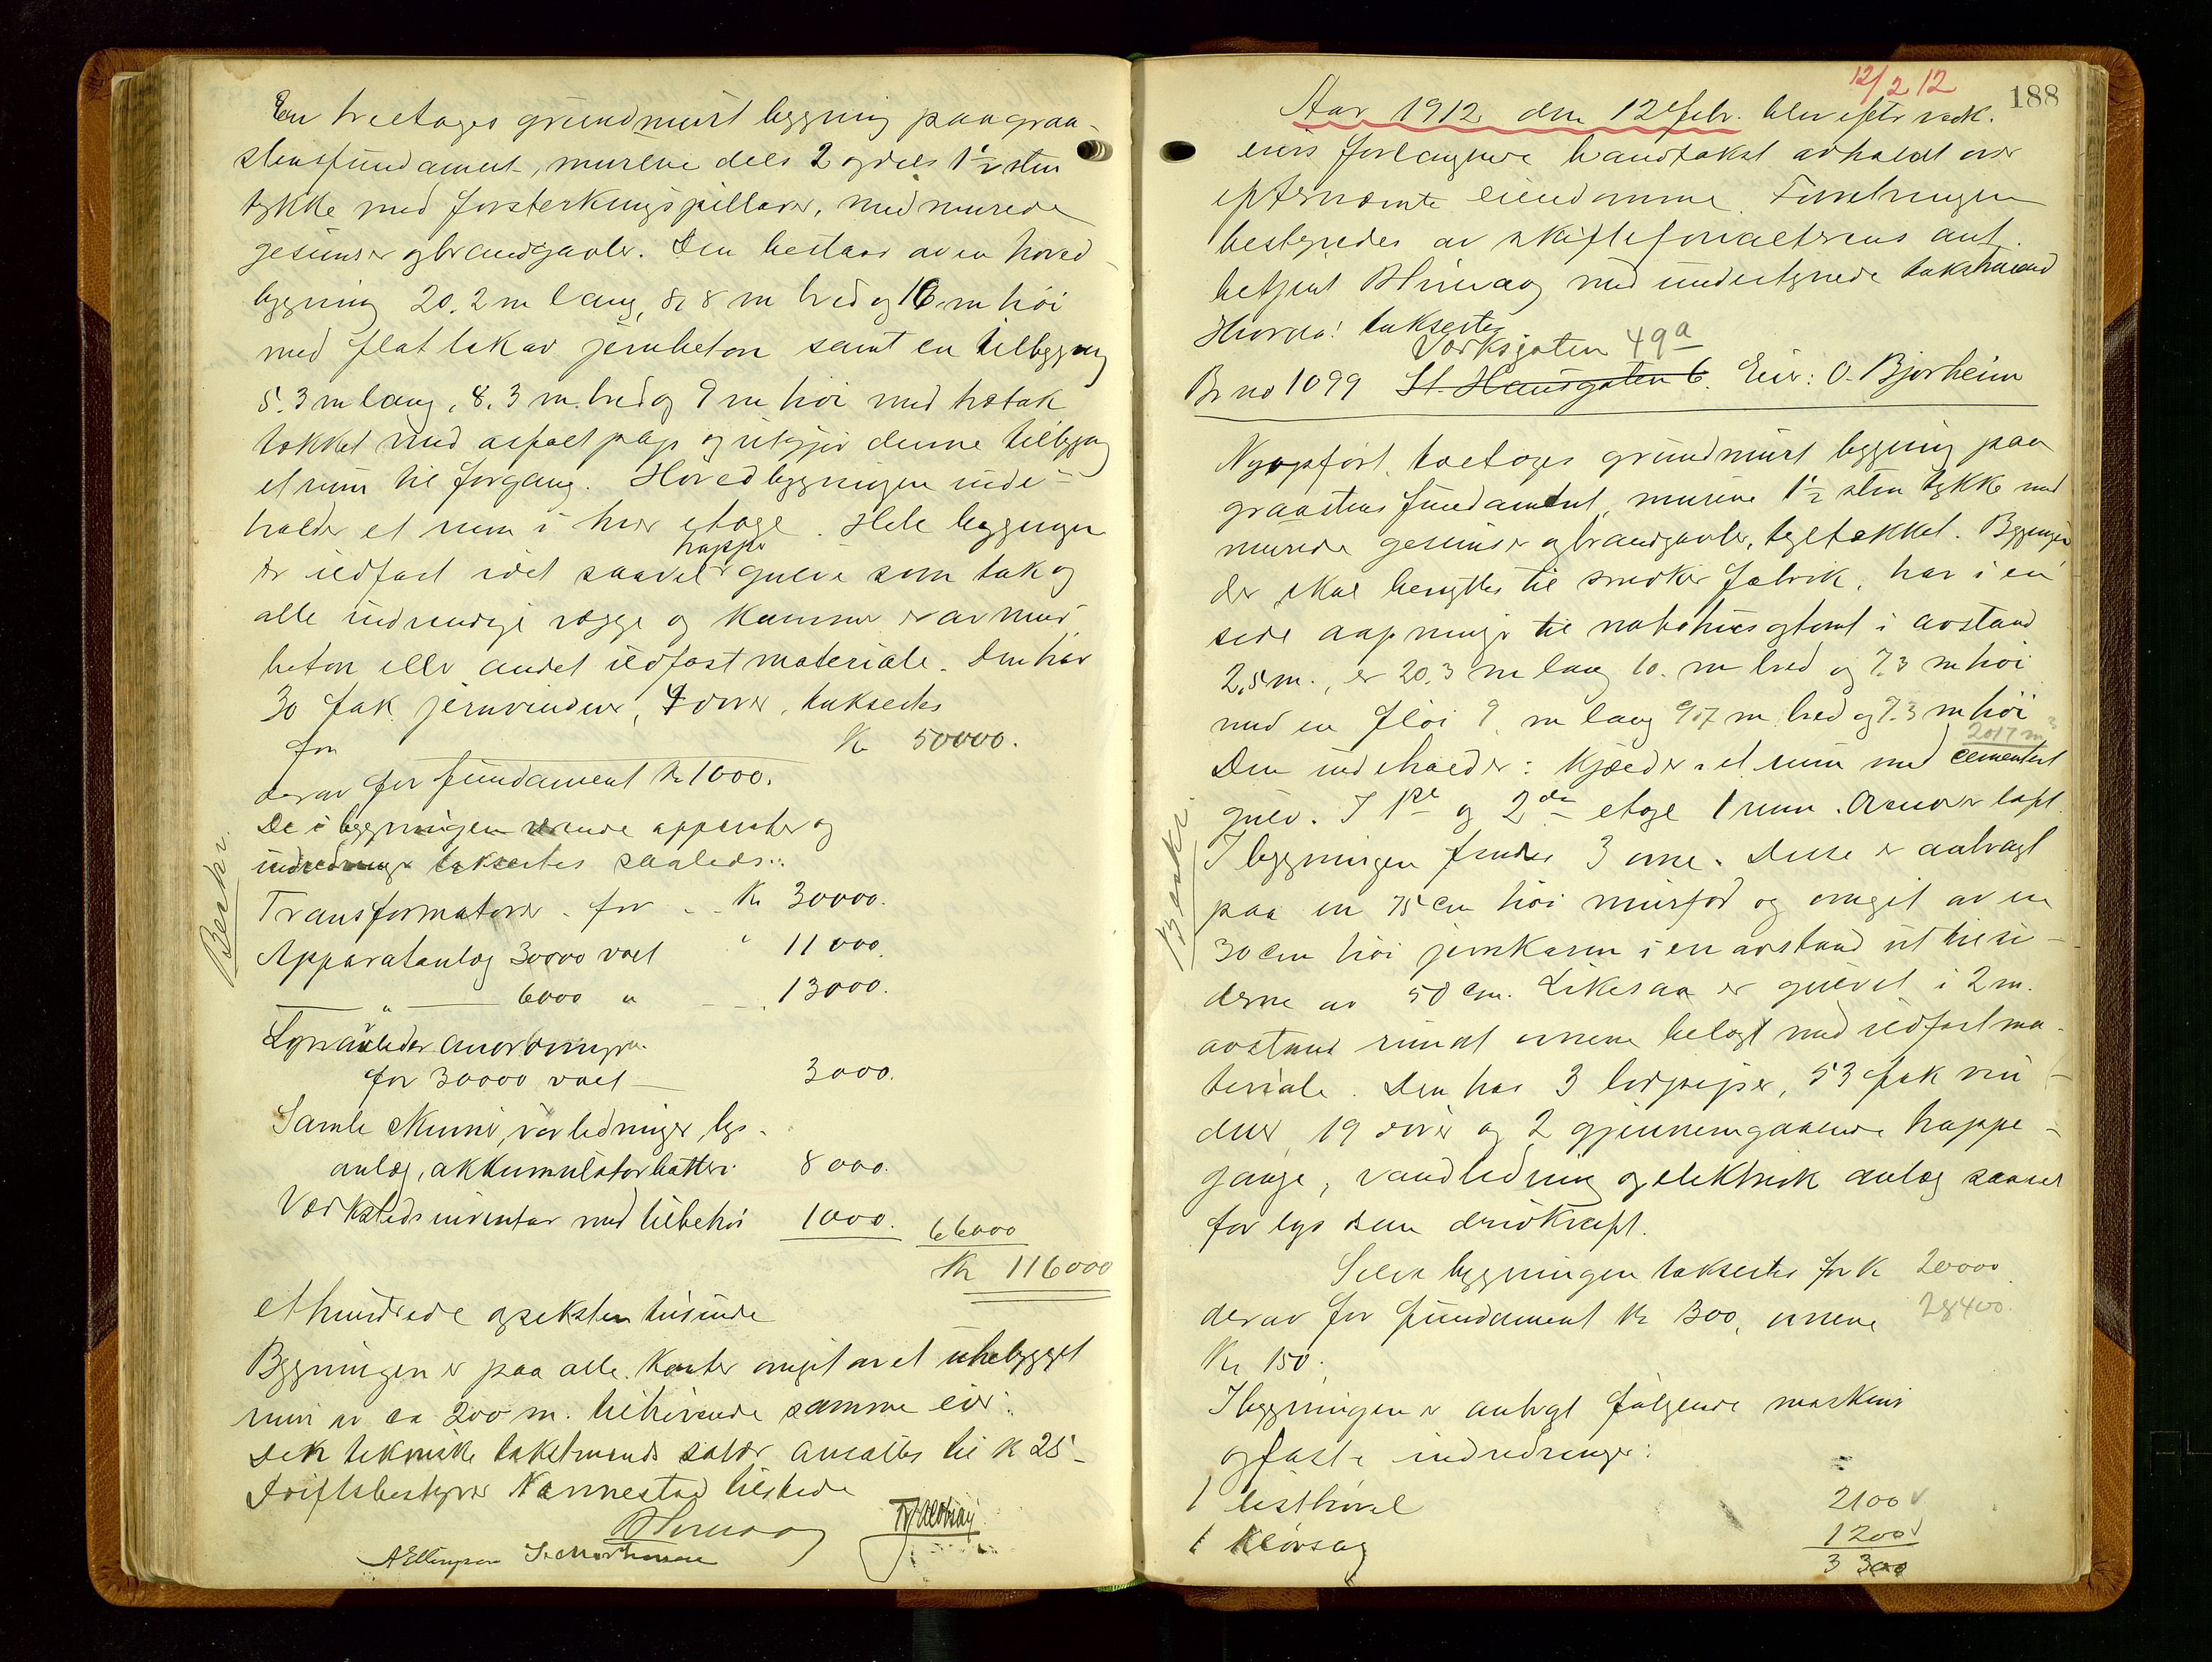 En treetages grundmurt bygning paa graa-
stensfundament, murene dels 2 og dels 1½ sten
tykke med forsterkningspillarer, med murede
gesimser og brandgavler. Den bestaar av en hoved
bygning 20.2 m lang, 8,8 m bred og 16 m høi
med flat tak av jernbeton samt en tilbygning
5.3 m lang, 8.3 m. bred og 9 m høi med trætak
tækket med asfaltpap og utgjør denne tilbygning
et rum til forgang. Hovedbygningen inde-
holder et rum i hver etage. Hele bygningen
er ildfast idet saavel trapper gulve som tak og
alle indvendige vægge og kammer er av mur,
beton eller andet ildfast materiale. Den har
30 fak jernvinduer, 4 dører, taksertes
for Kr 50000.
derav for fundament Kr 1000.
De i bygningen værende apparater og
indredninger taksertes saaledes:
Transformatorer for Kr 30000.
Apparatanlæg 30000 volt " 11000.
" 6000 " 13000.
Lynavleder anordninger
for 30000 volt 3000.
Samle skinner, rørledninger, lys-
anlæg, akkumulatorbatteri 8000.
Værkstedsinventar med tilbehør 1000. 66000
Kr 116000
et hundrede og seksten tusinde
Bygningen er paa alle kanter omgit av et ubebygget
rum av ca 200 m. tilhørende samme eier.
Den tekniske takstmands salær ansattes til Kr 25-
Driftsbestyrer Nannestad tilstede
A Ellingsen
Beskr.
12/2 12
188
Aar 1912 den 12 febr. blev efter vedk.
eiers forlangende brandtakst avholdt over
efternævnte eiendomme. Forretningen
bestyredes av skifteforvalterens aut.
betjent med undertegnede takstmænd
Hvorda! taksertes
Verksgaten 49a
Br no 1099 St. Hansgaten 6. Eier: O. Bjorheim
Nyopført toetages grundmurt bygning paa
graastensfundament, murene 1½ sten tykke med
murede gesimser og brandgavler, tegltækket. Bygningen
der skal benyttes til snedkerfabrik, har i en
side aapninger til nabohus og tomt i avstand
2,5 m., er 20.3 m lang 10. m bred og 7.3 m høi
med en fløi 9. m lang 9,7 m bred og 7.3 m høi
2017 m³
Den indeholder: Kjælder: et rum med cementert
gulv. I 1ste og 2den etage 1 rum. Ovenover loft.
I bygningen findes 3 ovne. Disse er anbragt
paa en 75 cm høi murfod og omgit av en
30 cm høi jernkarm i en avstand ut til si-
derne av 50 cm. Likesaa er gulvet i 2 m.
avstand rundt ovnene belagt med ildfast ma-
teriale. Den har 3 lodpiper, 53 fak vin-
duer, 19 dører og 2 gjennemgaaende trappe-
gange, vandledning og elektrisk anlæg saavel
for lys som drivkraft.
Selve bygningen taksertes for Kr 20000.
derav for fundament Kr 300, ovnene 28400.
Kr 150.
I bygningen er anbragt følgende maskiner
og faste indredninger:
1 listhøvel 2100
1 Kløvsag 1200
3300
Beskr.